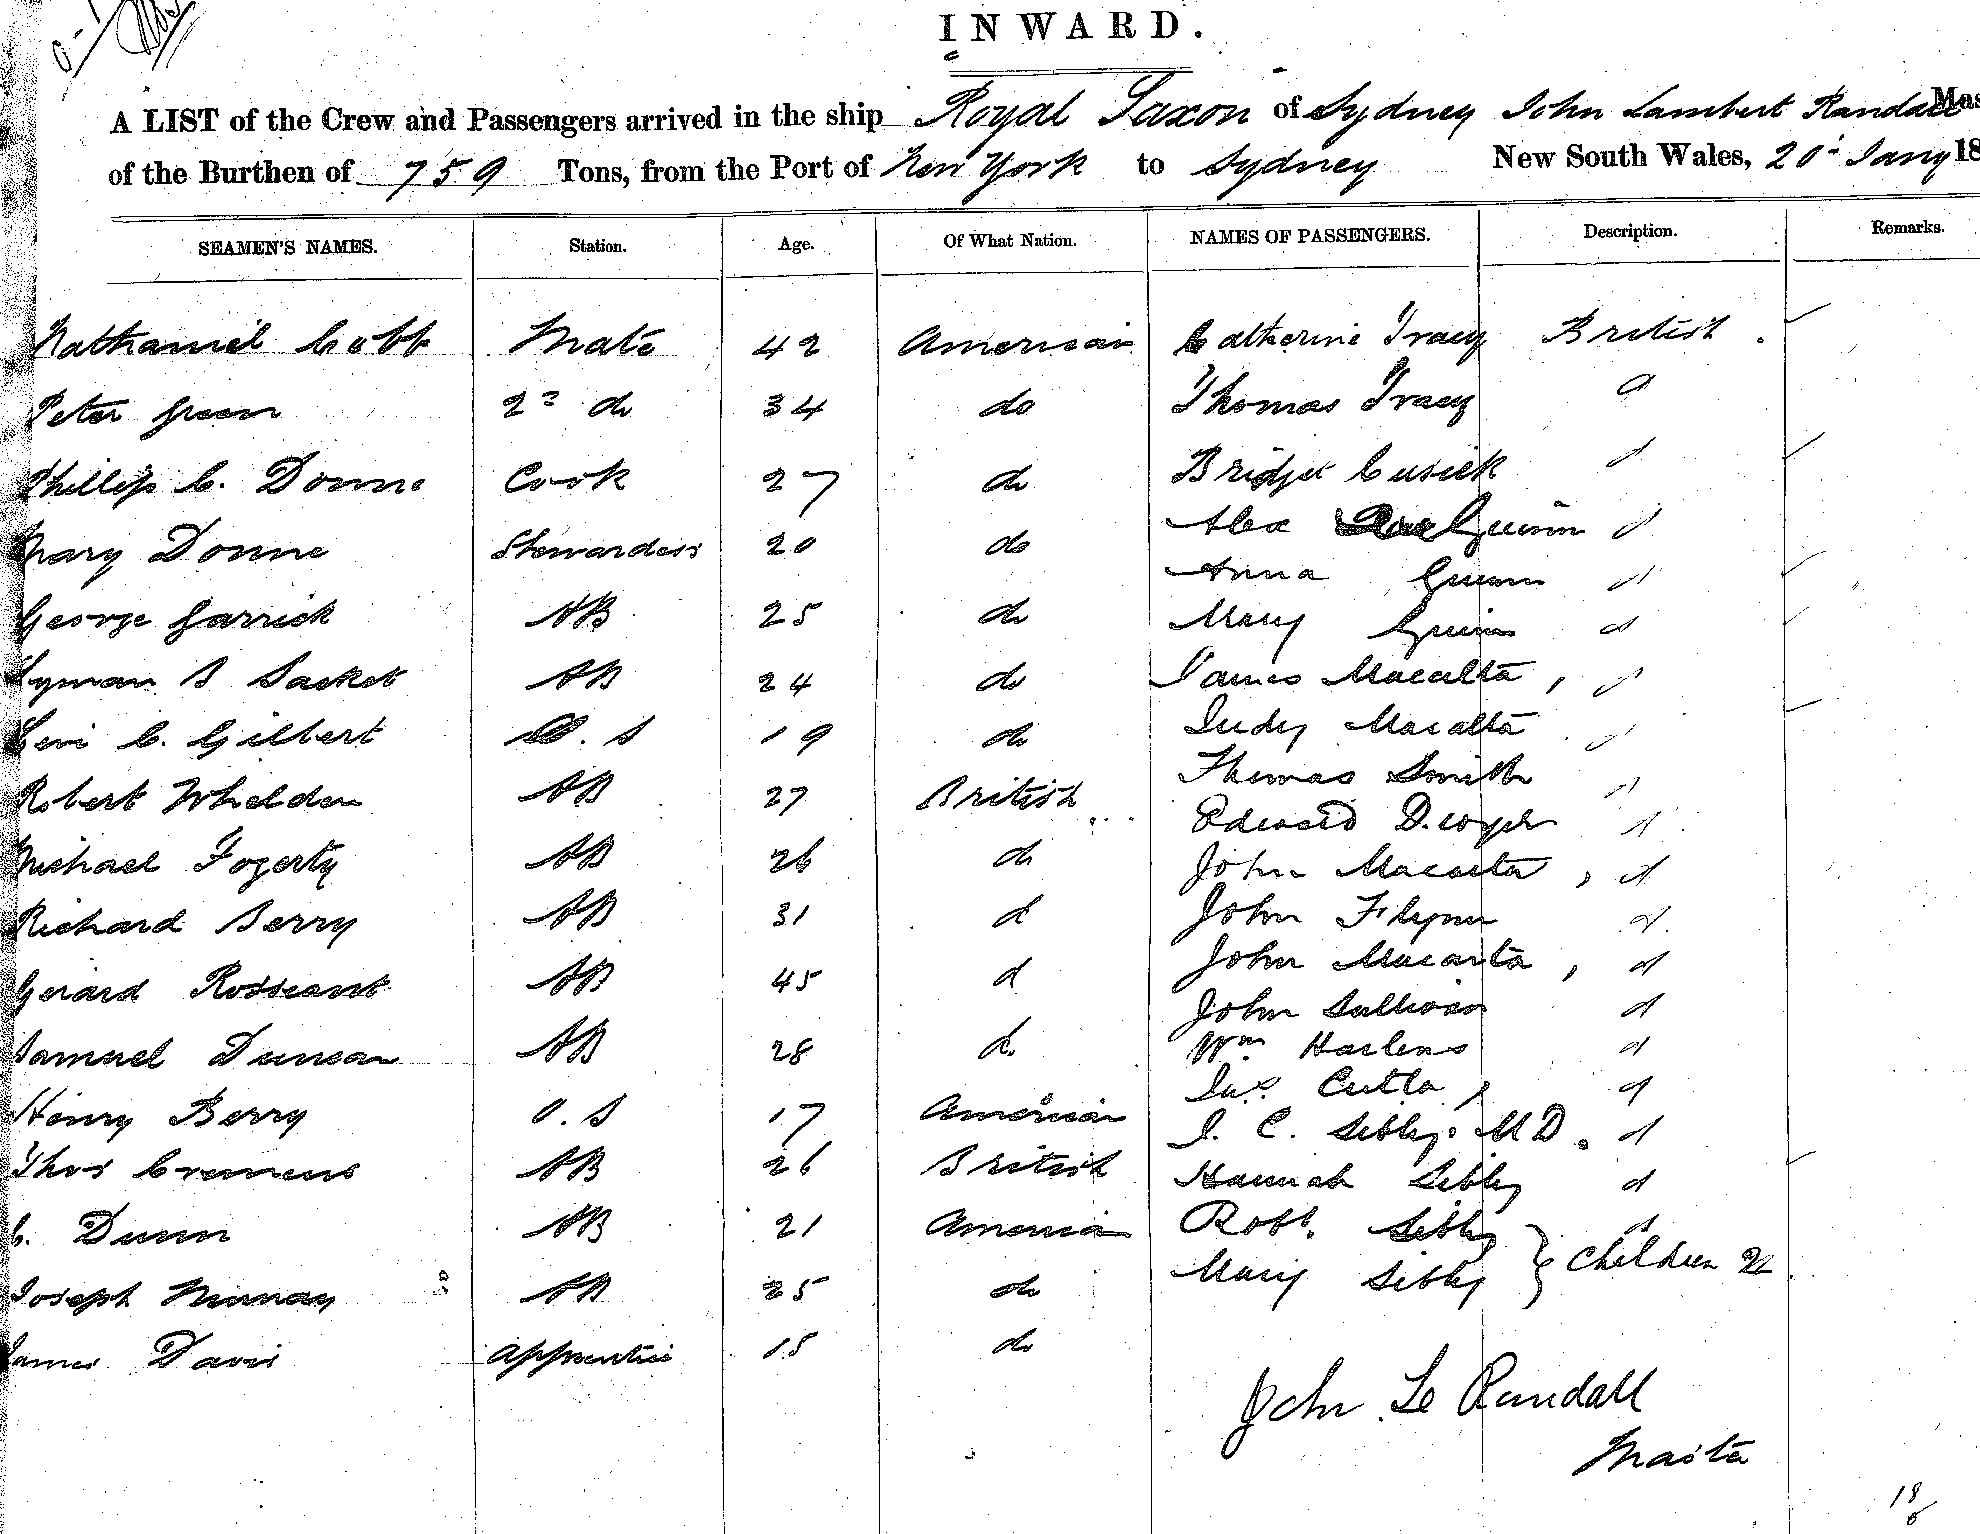 INWARD.
A LIST of the Crew and Passengers arrived in the ship Royal Saxon of Sydney John Lambert Randall Mas
of the Burthen of 759 Tons, from the Port of New York to Sydney New South Wales, 20 Jany 18
SEAMEN'S NAMES. Station. Age. Of What Nation. NAMES OF PASSENGERS. Description. Remarks.
Nathaniel Cobb Mate 42 American Catherine Tracy British
Peter Green 2d do 34 do Thomas Tracy d
Phillip C. Donne Cook 27 do Bridget Cusick d
Mary Donne Stewardess 20 do Alex Guinn d
George Garrick AB 25 do Anna Guinn d
Mary Guinn d
Lyman S Sacket AB 24 do James Macalta, d
Levi C. Gilbert O.S 19 do Judy Macalta d
Robert Whelden AB 27 British Thomas Smith d
Edward Dwyer d
Michael Fogerty AB 26 do John Macarta, d
Richard Berry AB 31 d John Flynn d
Gerard AB 45 d John Macarta, d
John Sullivan d
Samuel Duncan AB 28 d. Wm Harlens d
Jas Cutla, d
Henry Berry O.S 17 American J. C. Sibly. MD. d
Thos Cremens AB 26 British Hannah Sibly d
C. Dunn AB 21 American Robt. Sibly d
Children 2
Joseph Murray AB 25 do Mary Sibly
James Davis Apprentice 15 do
John Le Randall
Masta
18